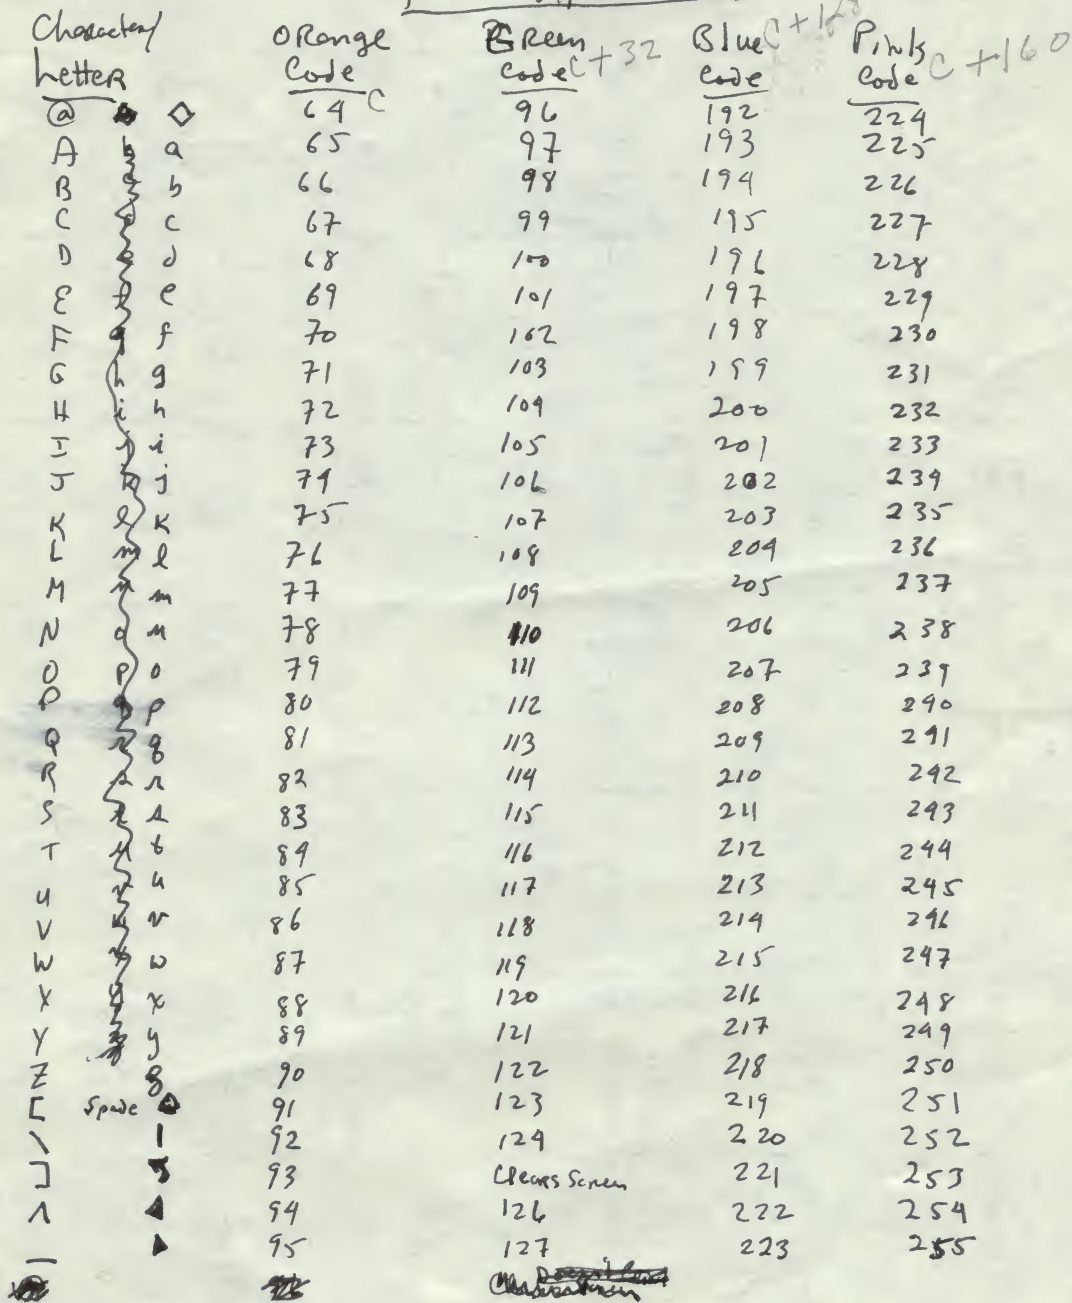 Character/ Orange Green Blue Pink
Letter Code Code C+32 Code C+128 Code C+160
@ ◇ 64 C 96 192 224
A a 65 97 193 225
B b 66 98 194 226
C c 67 99 195 227
D d 68 100 196 228
E e 69 101 197 229
F f 70 102 198 230
G g 71 103 199 231
H h 72 104 200 232
I i 73 105 201 233
J j 74 106 202 234
K k 75 107 203 235
L l 76 108 204 236
M m 77 109 205 237
N n 78 110 206 238
O o 79 111 207 239
P p 80 112 208 240
Q q 81 113 209 241
R r 82 114 210 242
S s 83 115 211 243
T t 84 116 212 244
U u 85 117 213 245
V v 86 118 214 246
W w 87 119 215 247
X x 88 120 216 248
Y y 89 121 217 249
Z z 90 122 218 250
[ Spade ♠ 91 123 219 251
\ | 92 124 220 252
] 93 Clears Screen 221 253
^ ◢ 94 126 222 254
_ ▶ 95 127 223 255